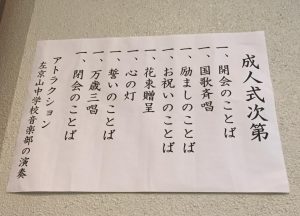 成人式次第
一、開会のことば
一、国歌斉唱
一、励ましのことば
一、お祝いのことば
一、花束贈呈
一、心の灯
一、誓いのことば
一、万歳三唱
一、閉会のことば
アトラクション
左京山中学校音楽部の演奏